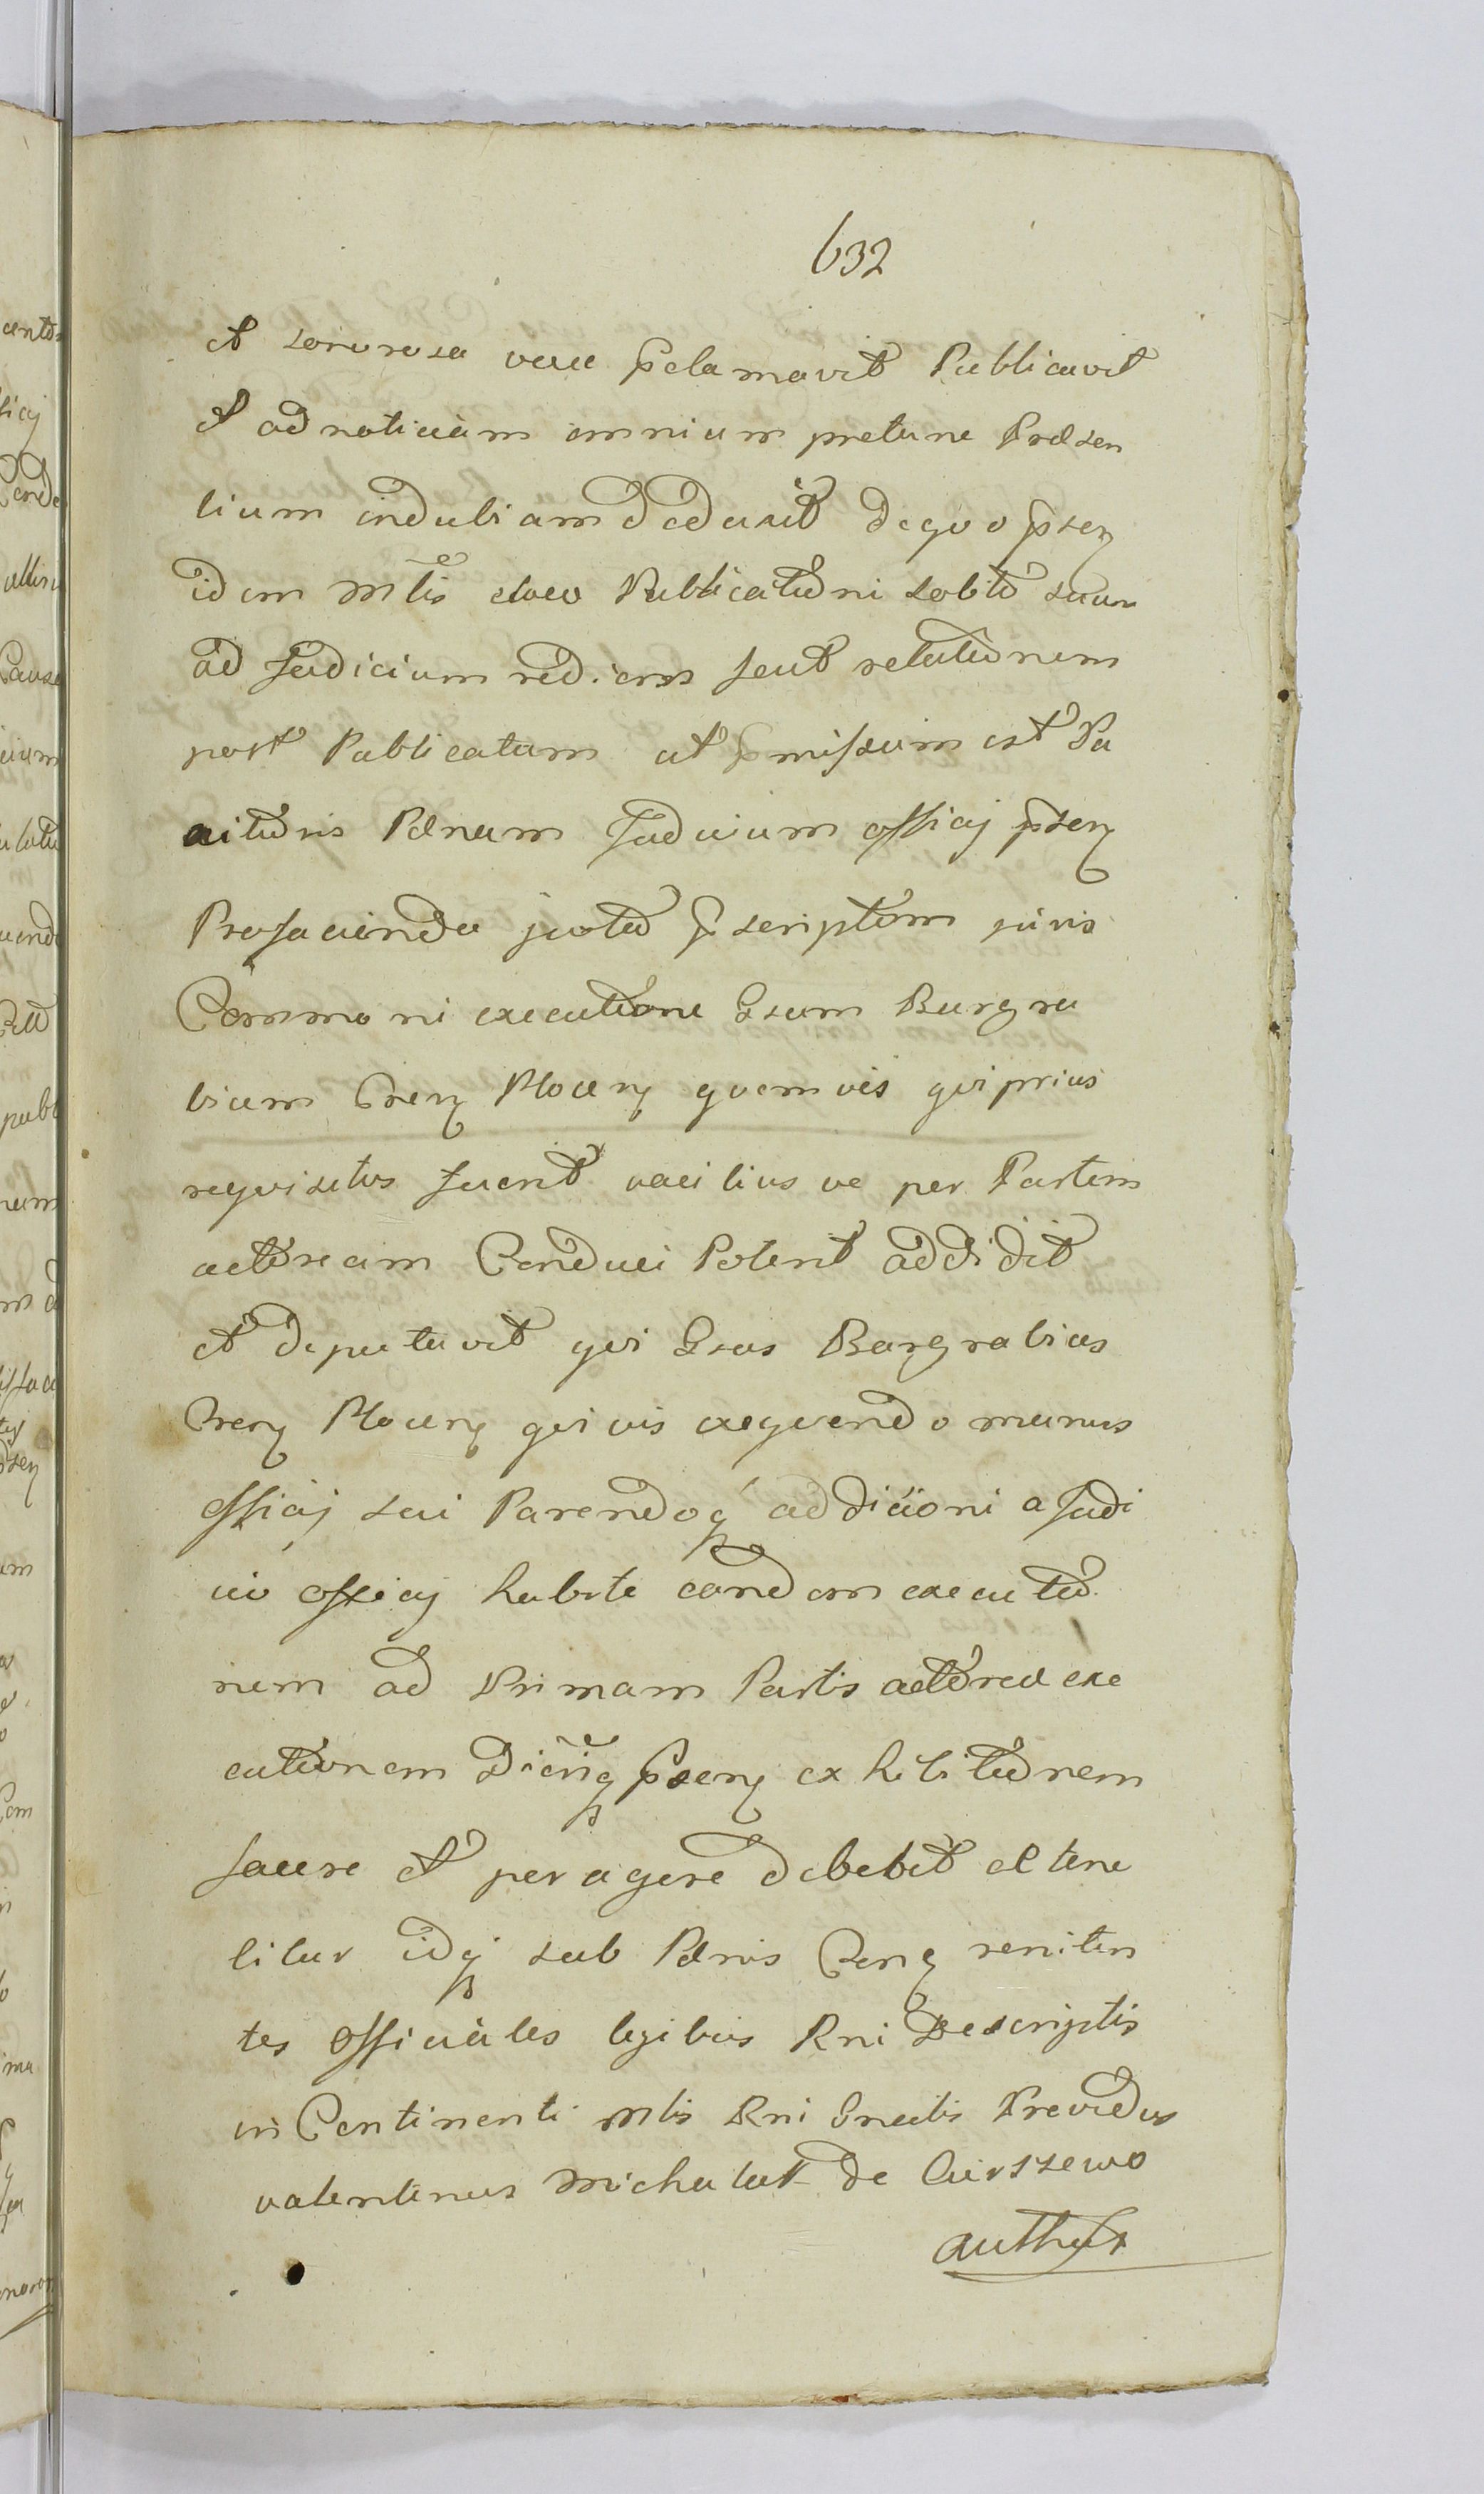 632
et sonorosa voce pclamavit Publicavit
et ad noticiam omnium ptunc Præsen
tium indubiam deduxit de quo psen
idem Mtis sua Publicatione solita suam
ad Judicium rediens fecit relationem
post Publicatam ut pmissum est Ba
nitionis Pænam Judicium officij psen
Pro facienda juxta pscriptum juris
Communi executione Gsum Burgra
bium Cren Plocen quemvis qui prius
requisitus fuerit facilius ve per Partem
actoream Conduci Poterit addidit
et deputavit qui Gsus Burgrabius
Cren Plocen quivis exequendo munus
officij sui Parendoq addicioni a Judi
cio officij habite eandem executio
nem ad Primam Partis actoreæ exe
cutionem Dicniq psen exhibitionem
facere et peragere debebit et tene
bitur idq sub Pænis Cen reniten
tes officiales legibus Rni Descriptis
in Continenti Mtis Rni Gnralis Providus
Valentinus Michalak de